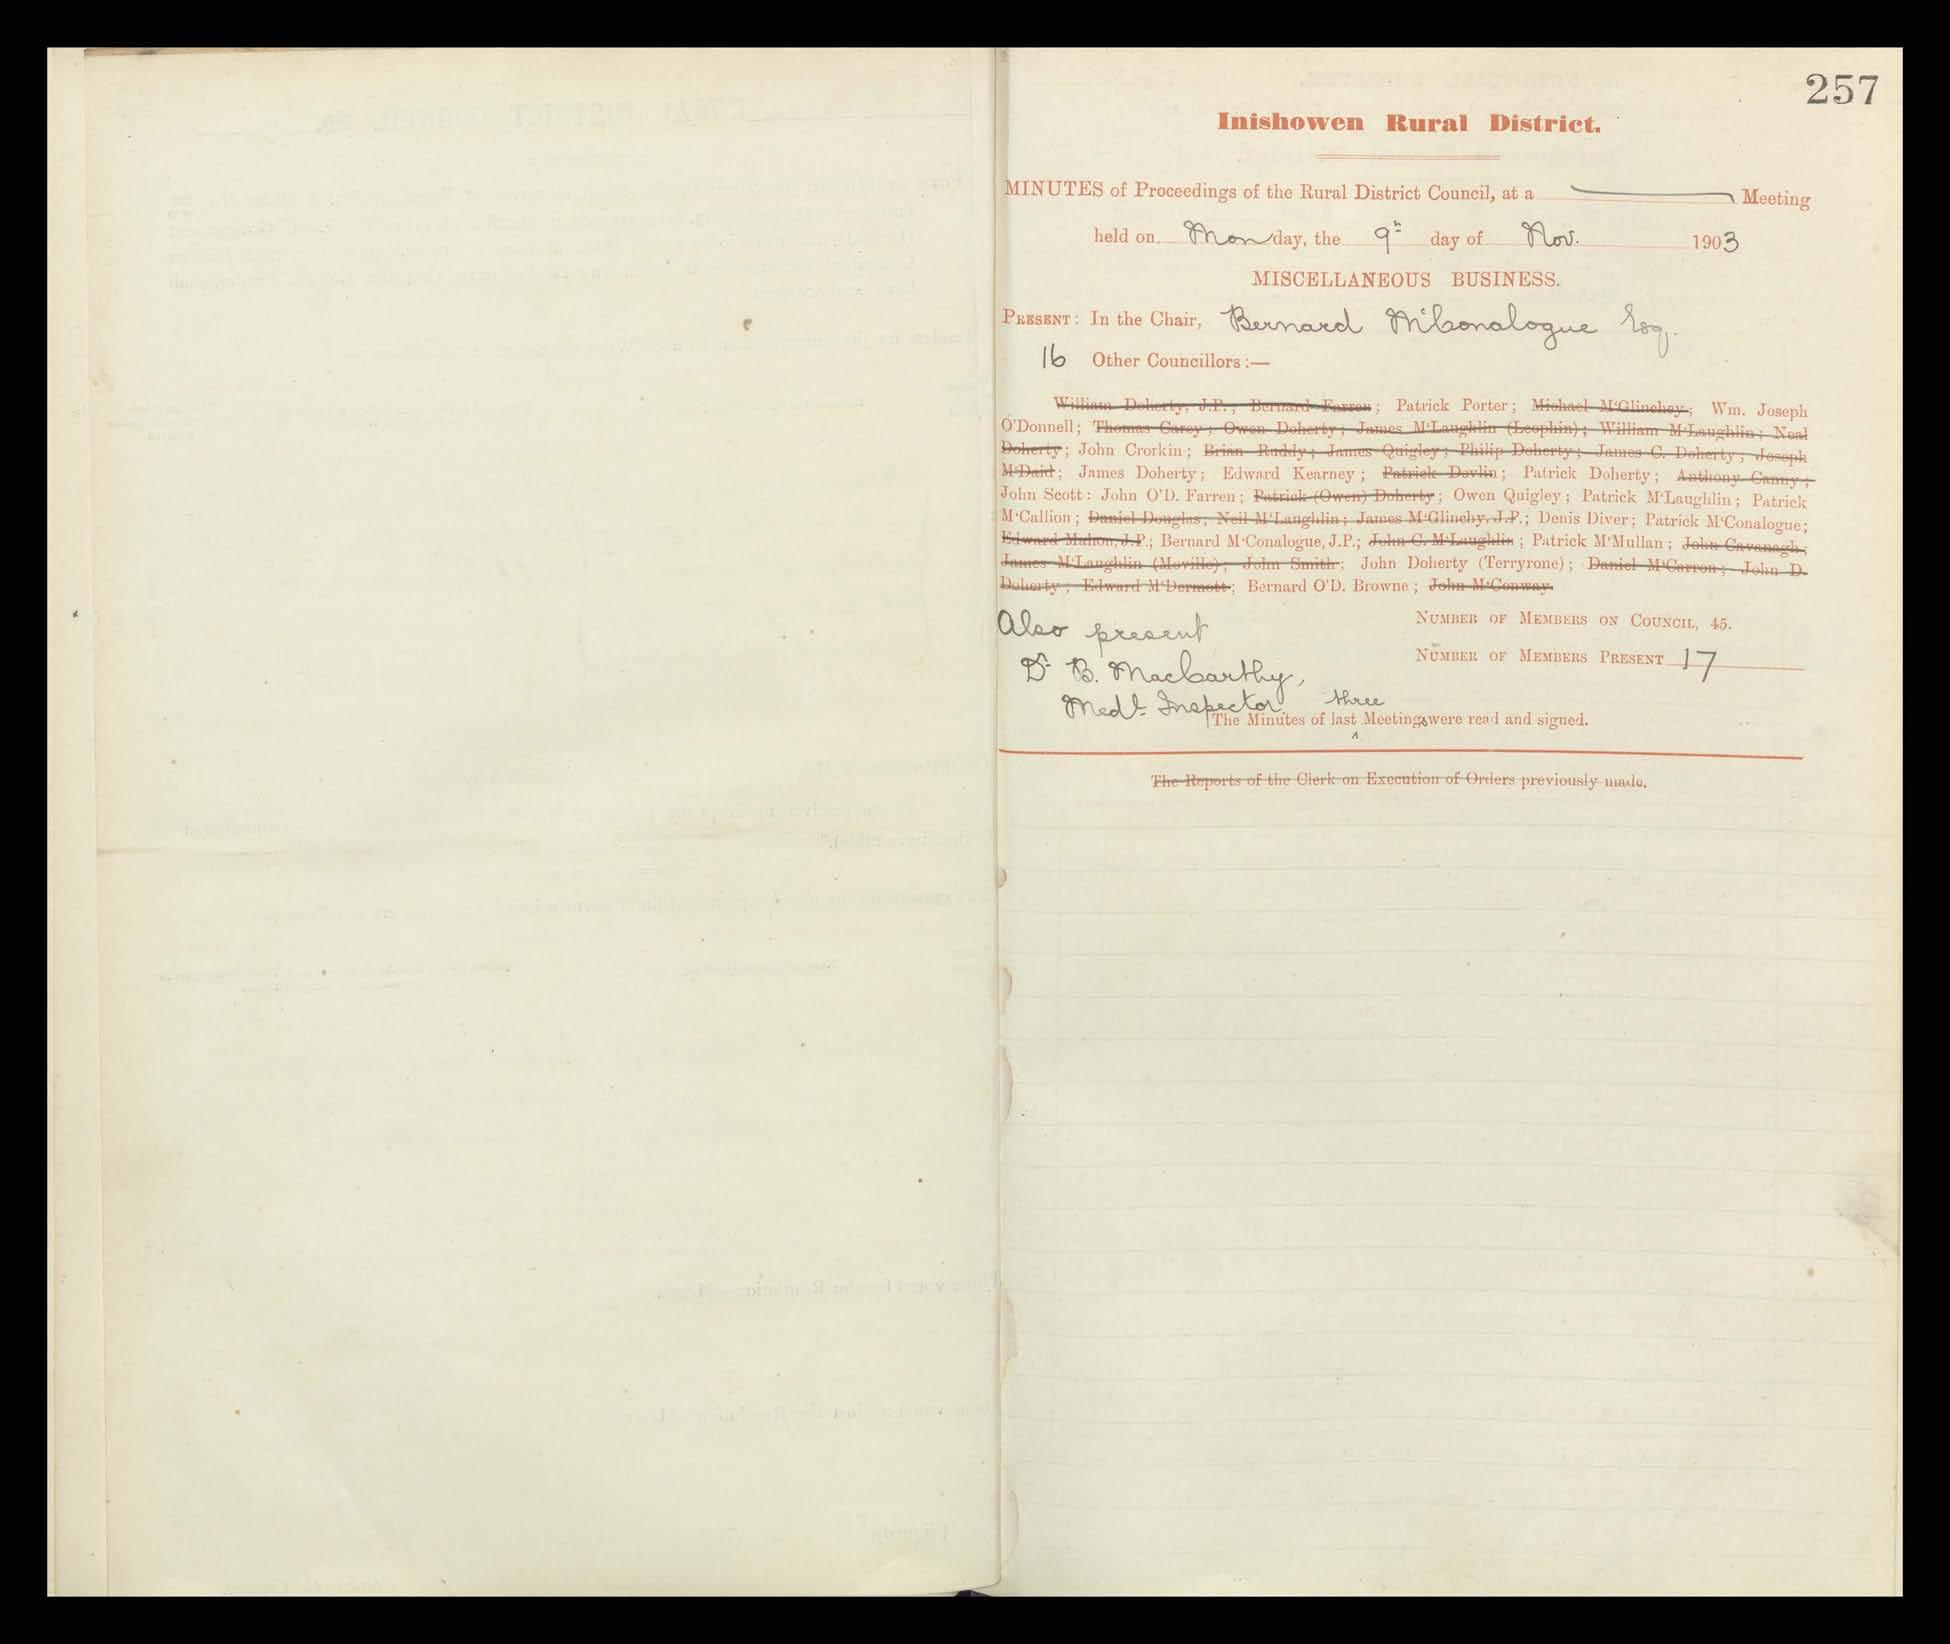 257
Inishowen Rural District.
MINUTES of Proceedings of the Rural District Council, at a Meeting
held on Monday, the 9th day of Nov. 1903
MISCELLANEOUS BUSINESS.
PRESENT: In the Chair, Bernard McConalogue Esq.
16 Other Councillors:—
William Doherty, J.P.; Bernard Farren; Patrick Porter; Michael M'Glinchey; Wm. Joseph
O'Donnell; Thomas Carey; Owen Doherty; James M'Laughlin (Leophin); William M'Laughlin; Neal
Doherty; John Crorkin; Brian Ruddy; James Quigley; Philip Doherty; James C. Doherty; Joseph
M'Daid; James Doherty; Edward Kearney; Patrick Devlin; Patrick Doherty; Anthony Canny;
John Scott: John O'D. Farren; Patrick (Owen) Doherty; Owen Quigley; Patrick M'Laughlin; Patrick
M'Callion; Daniel Douglas; Neil M'Laughlin; James M'Glinchy, J.P.; Denis Diver; Patrick M'Conalogue;
Edward Mahon, J.P.; Bernard M'Conalogue, J.P.; John C. M'Laughlin; Patrick M'Mullan; John Cavanagh;
James M'Laughlin (Moville); John Smith; John Doherty (Terryrone); Daniel M'Carron; John D.
Doherty; Edward M'Dermott; Bernard O'D. Browne; John M'Conway.
Also present
NUMBER OF MEMBERS ON COUNCIL, 45.
NUMBER OF MEMBERS PRESENT 17
Dr B. MacCarthy,
Medl. Inspector
three
The Minutes of last Meetings were read and signed.
The Reports of the Clerk on Execution of Orders previously made.